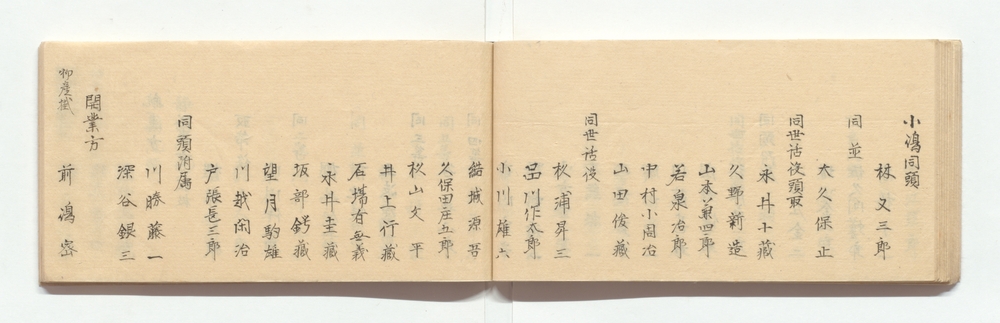 小潟同頭
林又三郎
同並
大久保止
同世話役頭取
永井十藏
久野新造
山本菊四郎
若泉治郎
中村小周治
山田俊藏
同世話役
松浦昇三
品川作太郎
小川雄六
結城源吾
久保田庄五郎
杉山文平
井上行藏
石塲有無義
永井圭藏
坂部鍔藏
望月駒雄
川越陶治
同頭附属
戸張長三郎
川勝藤一
深谷銀三
開業方
物産掛
前潟密